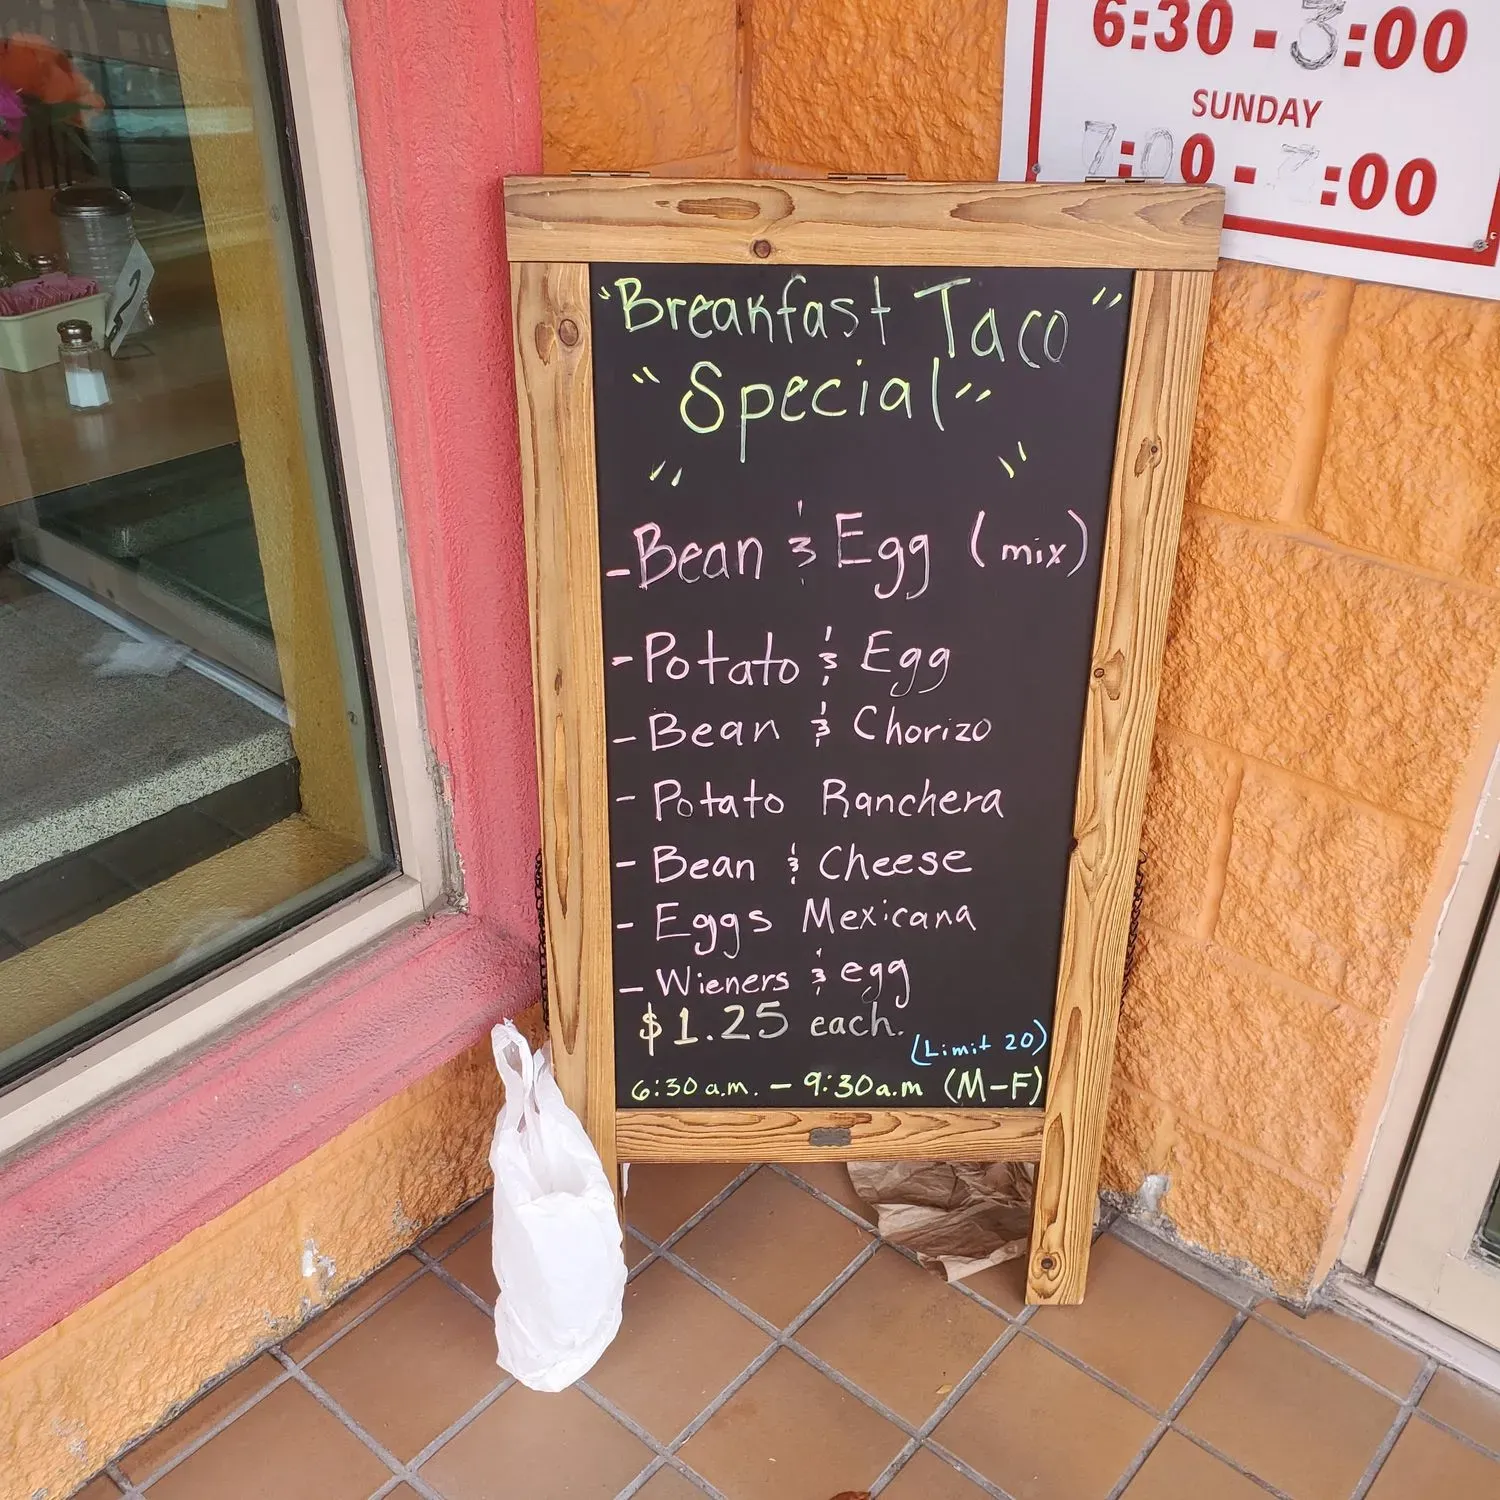 6:30 - 3:00
SUNDAY
7:00 - 7:00
"Breakfast Taco"
"Special"
" "
- Bean & Egg (mix)
- Potato & Egg
- Bean & Chorizo
- Potato Ranchera
- Bean & Cheese
- Eggs Mexicana
- Wieners & egg
$1.25 each.
(Limit 20)
6:30 a.m. - 9:30 a.m (M-F)
2